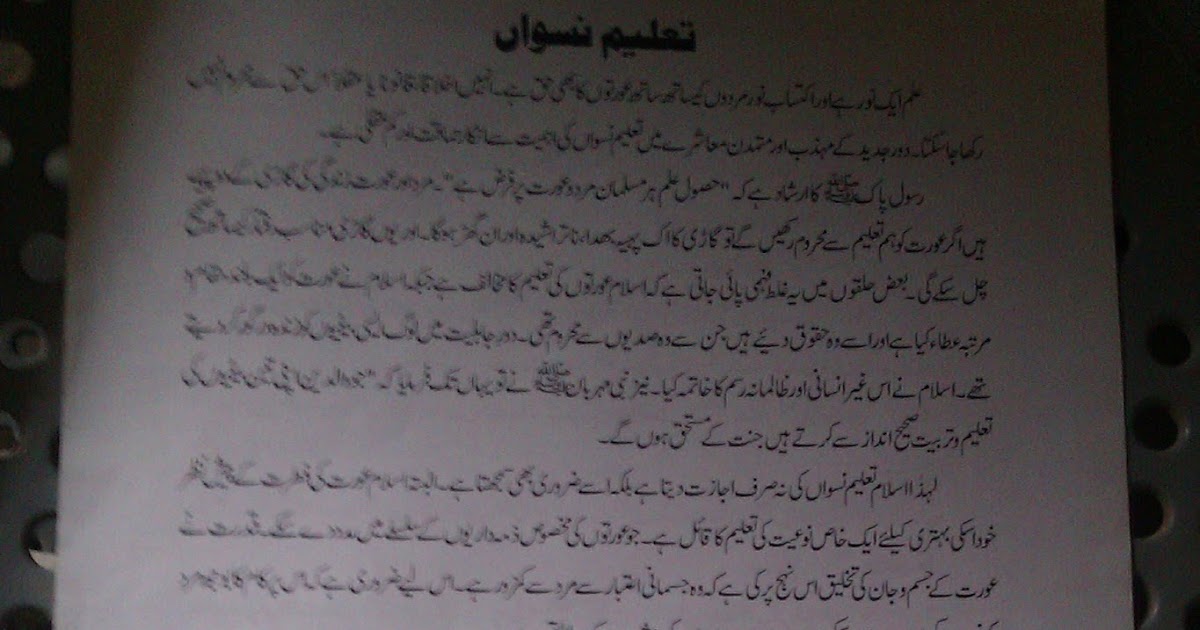 تعلیم نسواں
علم ایک نور ہے اور اکتساب نور مردوں کیساتھ ساتھ عورتوں کا بھی حق ہے۔ انہیں اخلاقاً، قانوناً یا عقلاً اس حق سے محروم نہیں
رکھا جاسکتا۔ دور جدید کے مہذب اور متمدن معاشرے میں تعلیم نسواں کی اہمیت سے انکار حماقت اور کم عقلی ہے۔
رسول پاک ﷺ کا ارشاد ہے کہ "حصول علم ہر مسلمان مرد و عورت پر فرض ہے"۔ مرد اور عورت زندگی کی گاڑی کے دو پہیے
ہیں اگر عورت کو ہم تعلیم سے محروم رکھیں گے تو گاڑی کا اک پہیہ بھدا، ناتراشیدہ اور ان گھڑ ہوگا۔ اور یوں گاڑی مناسب رفتار کیساتھ نہیں
چل سکے گی۔ بعض حلقوں میں یہ غلط فہمی پائی جاتی ہے کہ اسلام عورتوں کی تعلیم کا مخالف ہے جبکہ اسلام نے عورت کو ایک بلند مقام و
مرتبہ عطاء کیا ہے اور اسے وہ حقوق دئیے ہیں جن سے وہ صدیوں سے محروم تھی۔ دور جاہلیت میں لوگ اپنی بیٹیوں کو زندہ درگور کر دیتے
تھے۔ اسلام نے اس غیر انسانی اور ظالمانہ رسم کا خاتمہ کیا۔ نیز نبی مہربان ﷺ نے تو یہاں تک فرمایا کہ "جو والدین اپنی تین بیٹیوں کی
تعلیم و تربیت صحیح انداز سے کرتے ہیں جنت کے مستحق ہوں گے۔
لہذا اسلام تعلیم نسواں کی نہ صرف اجازت دیتا ہے بلکہ اسے ضروری بھی سمجھتا ہے۔ البتہ اسلام عورت کی فطرت کے پیش نظر
خود اسکی بہتری کیلئے ایک خاص نوعیت کی تعلیم کا قائل ہے۔ جو عورتوں کی مخصوص ذمہ داریوں کے سلسلے میں مدد دے سکے۔ قدرت نے
عورت کے جسم و جان کی تخلیق اس نہج پر کی ہے کہ وہ جسمانی اعتبار سے مرد سے کمزور ہے۔ اس لیے ضروری ہے کہ اس پر کام کا بوجھ مرد